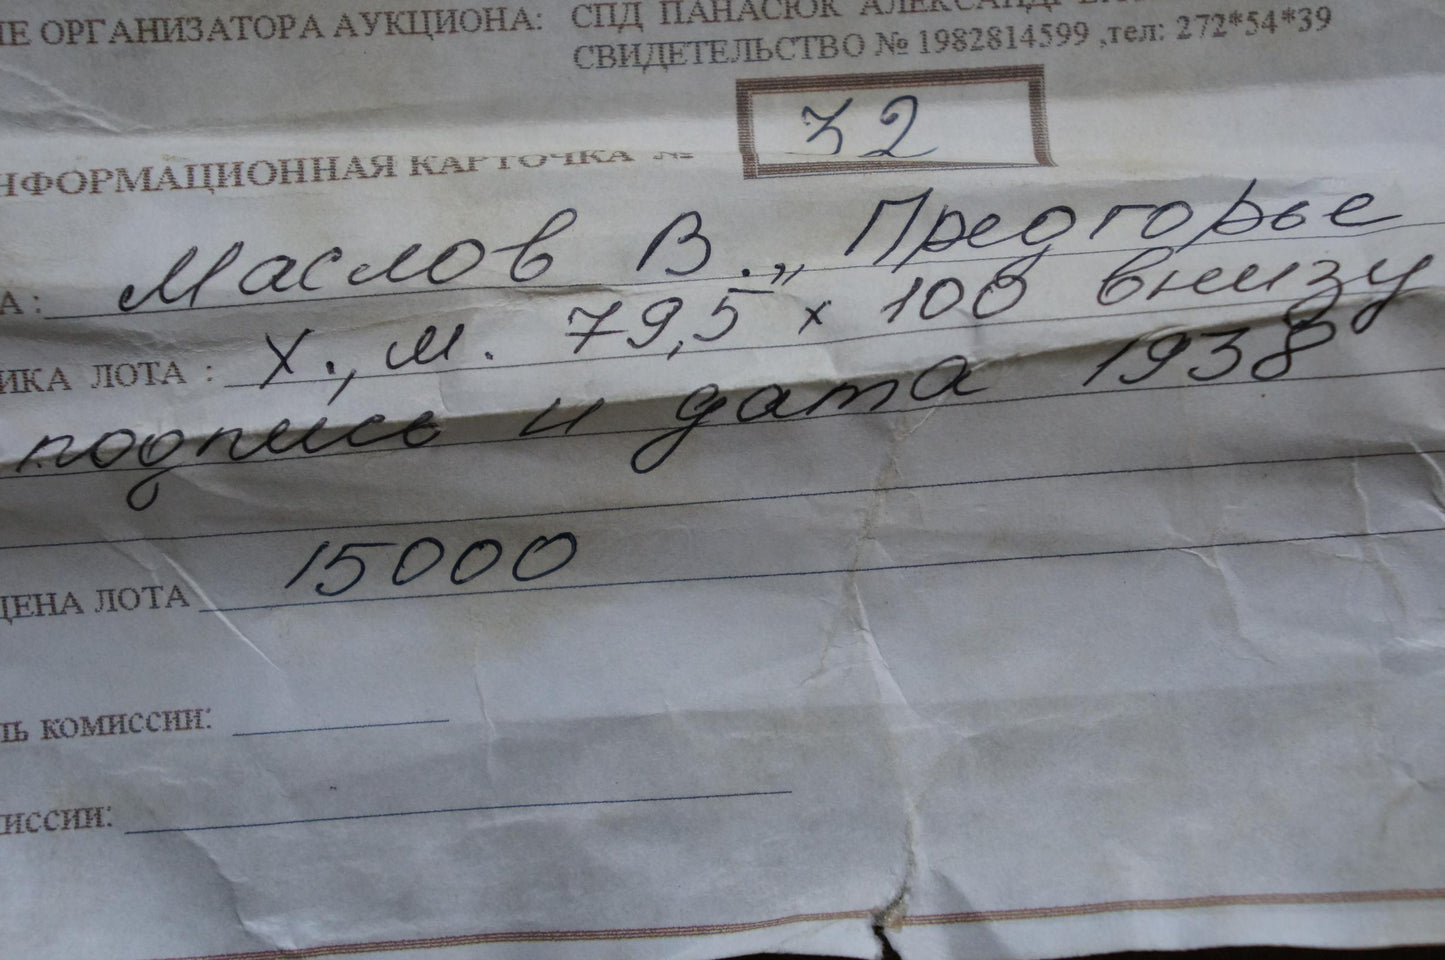 ИЕ ОРГАНИЗАТОРА АУКЦИОНА: СПД ПАНАСЮК
СВИДЕТЕЛЬСТВО № 1982814599 ,тел: 272*54*39
НФОРМАЦИОННАЯ КАРТОЧКА № 32
А: Маслов В. „Предгорье
ИКА ЛОТА : Х., м. 79,5 х 100 внизу
подпись и дата 1938
ЦЕНА ЛОТА 15000
ЛЬ КОМИССИИ:
ИССИИ: